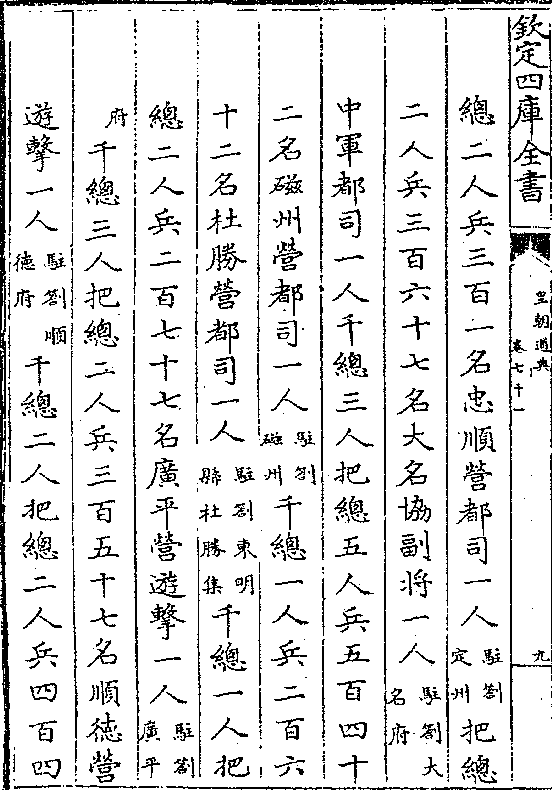 欽定四庫全書
皇朝通典
卷七十一
九
總二人兵三百一名忠順營都司一人駐劄定州把總
二人兵三百六十七名大名協副將一人駐劄大名府
中軍都司一人千總三人把總五人兵五百四十
二名磁州營都司一人駐劄磁州千總一人兵二百六
十二名杜勝營都司一人駐劄東明縣杜勝集千總一人把
總二人兵二百七十七名廣平營遊擊一人駐劄廣平
府千總三人把總二人兵三百五十七名順德營
遊擊一人駐劄順德府千總二人把總二人兵四百四